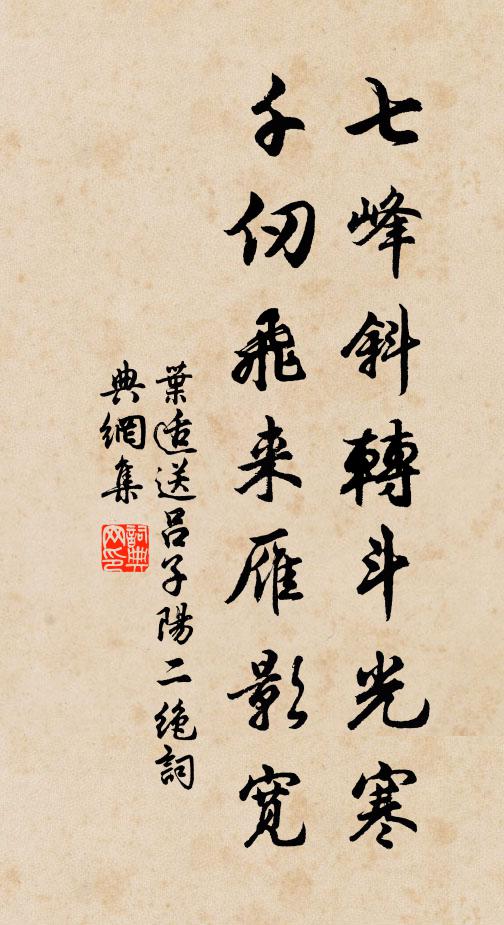 七峰斜轉斗光寒
千仞飛来雁影寬
葉适送呂子陽二絶詞
典網集
詞典網印